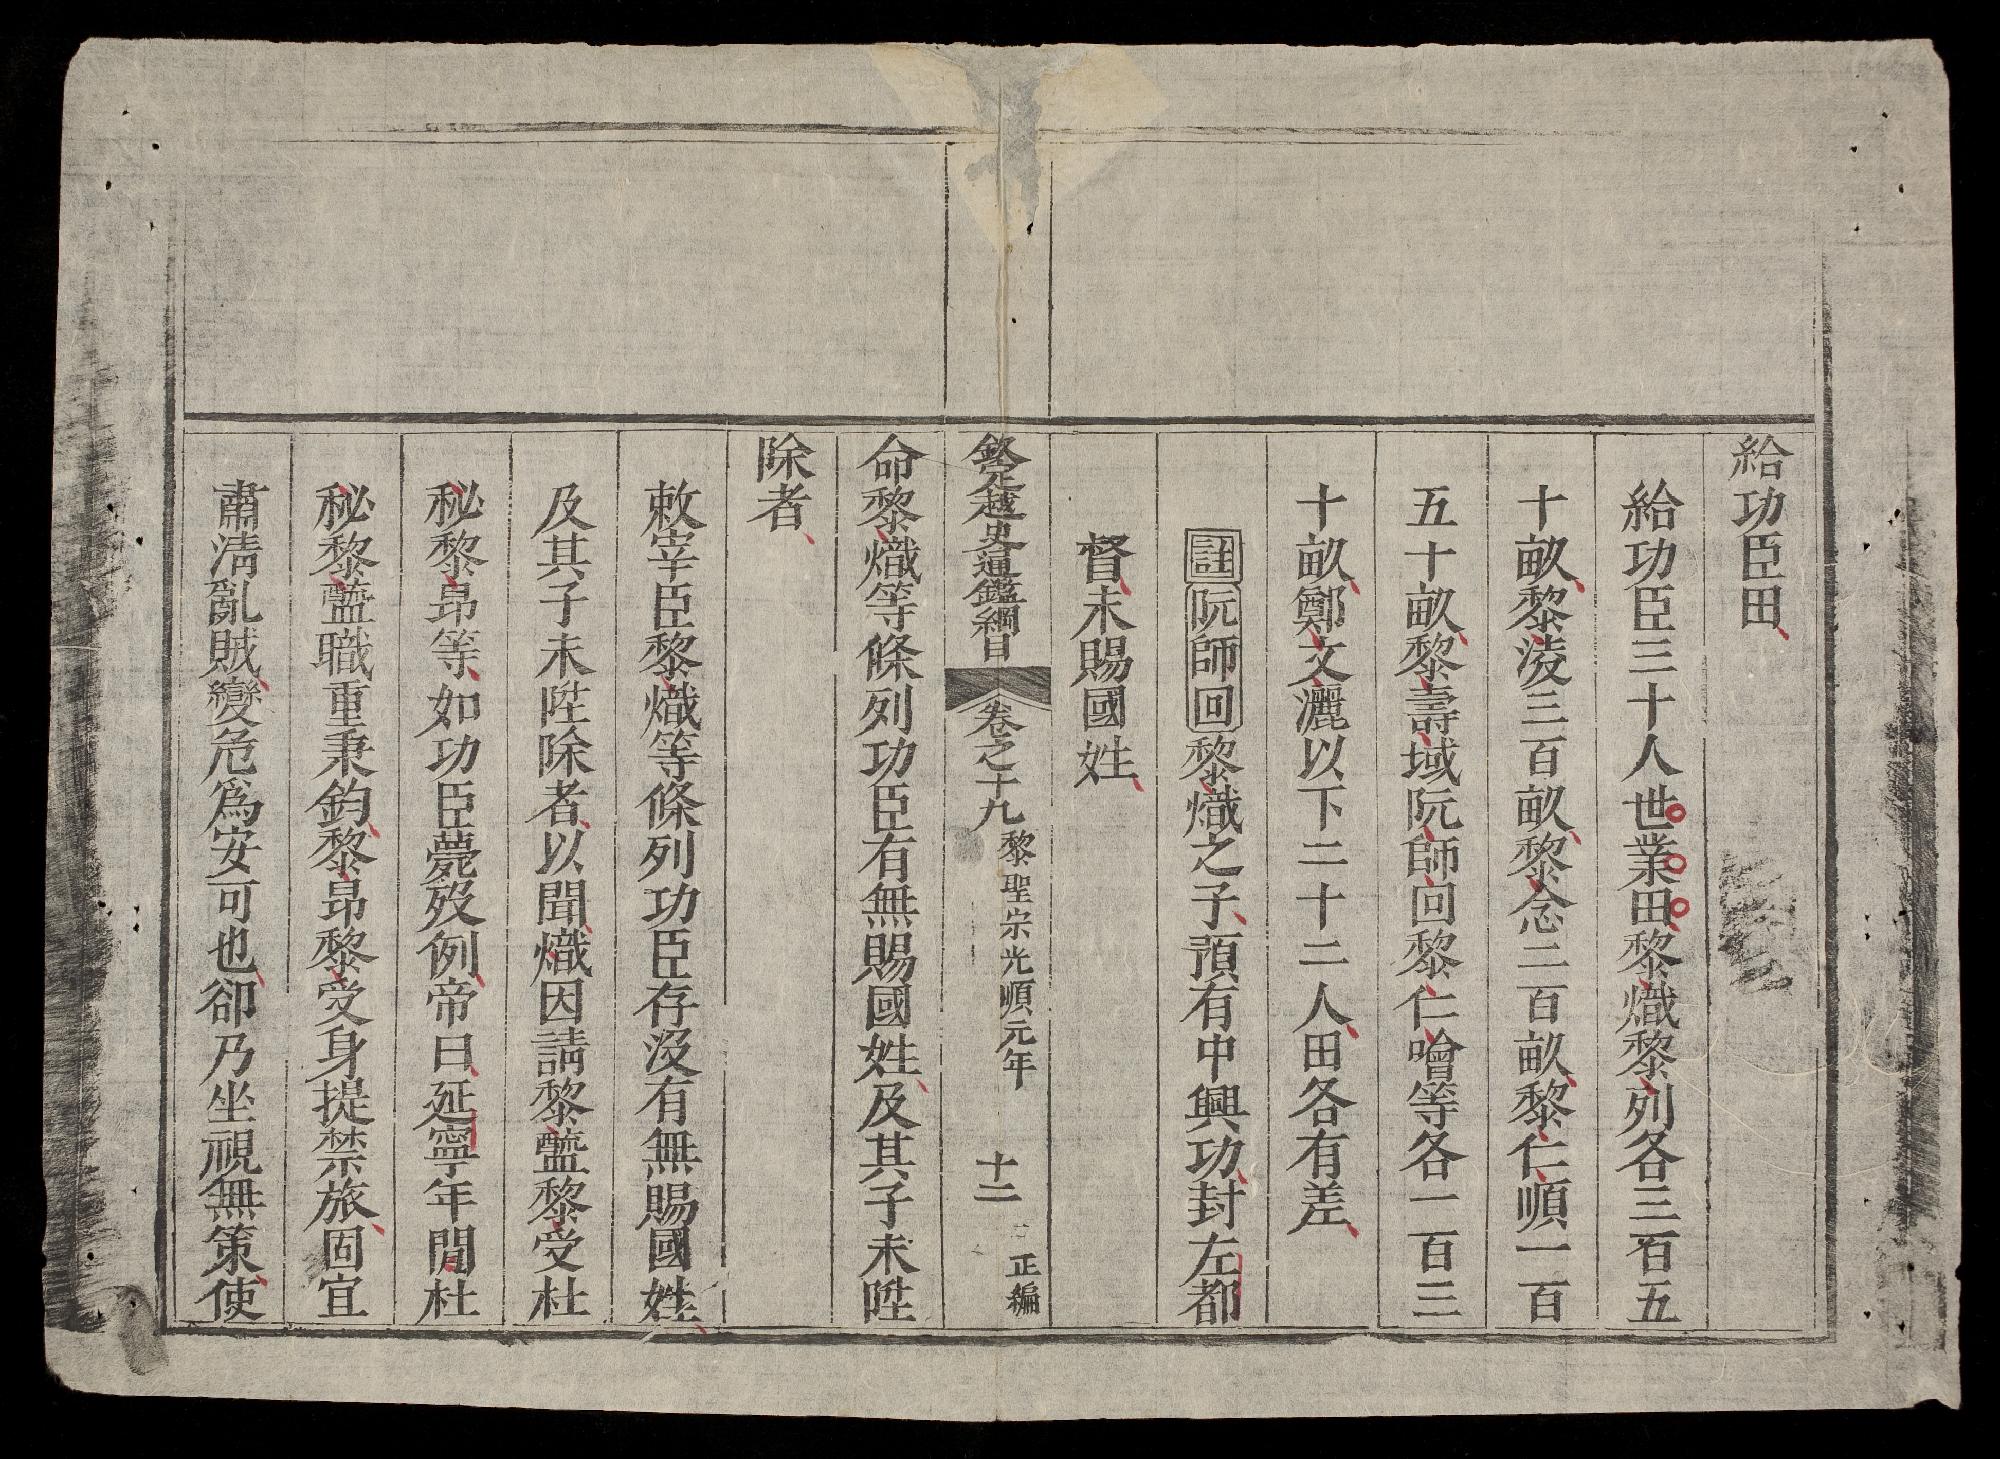 給功臣田
給功臣三十人世業田黎熾黎列各三百五
十畝黎淩三百畝黎念二百畝黎仁順一百
五十畝黎壽域阮師回黎仁噲等各一百三
十畝鄭文灑以下二十二人田各有差
註阮師回黎熾之子預有中興功封左都
督未賜國姓
欽定越史通鑑綱目 卷之十九 黎聖宗光順元年 十二 正編
命黎熾等條列功臣有無賜國姓及其子未陞
除者
敕宰臣黎熾等條列功臣存沒有無賜國姓
及其子未陞除者以聞熾因請黎蠶黎受杜
秘黎昂等如功臣薨歿例帝曰延寧年間杜
秘黎蠶職重秉鈞黎昂黎受身提禁旅固宜
肅淸亂賊變危爲安可也卻乃坐視無策使